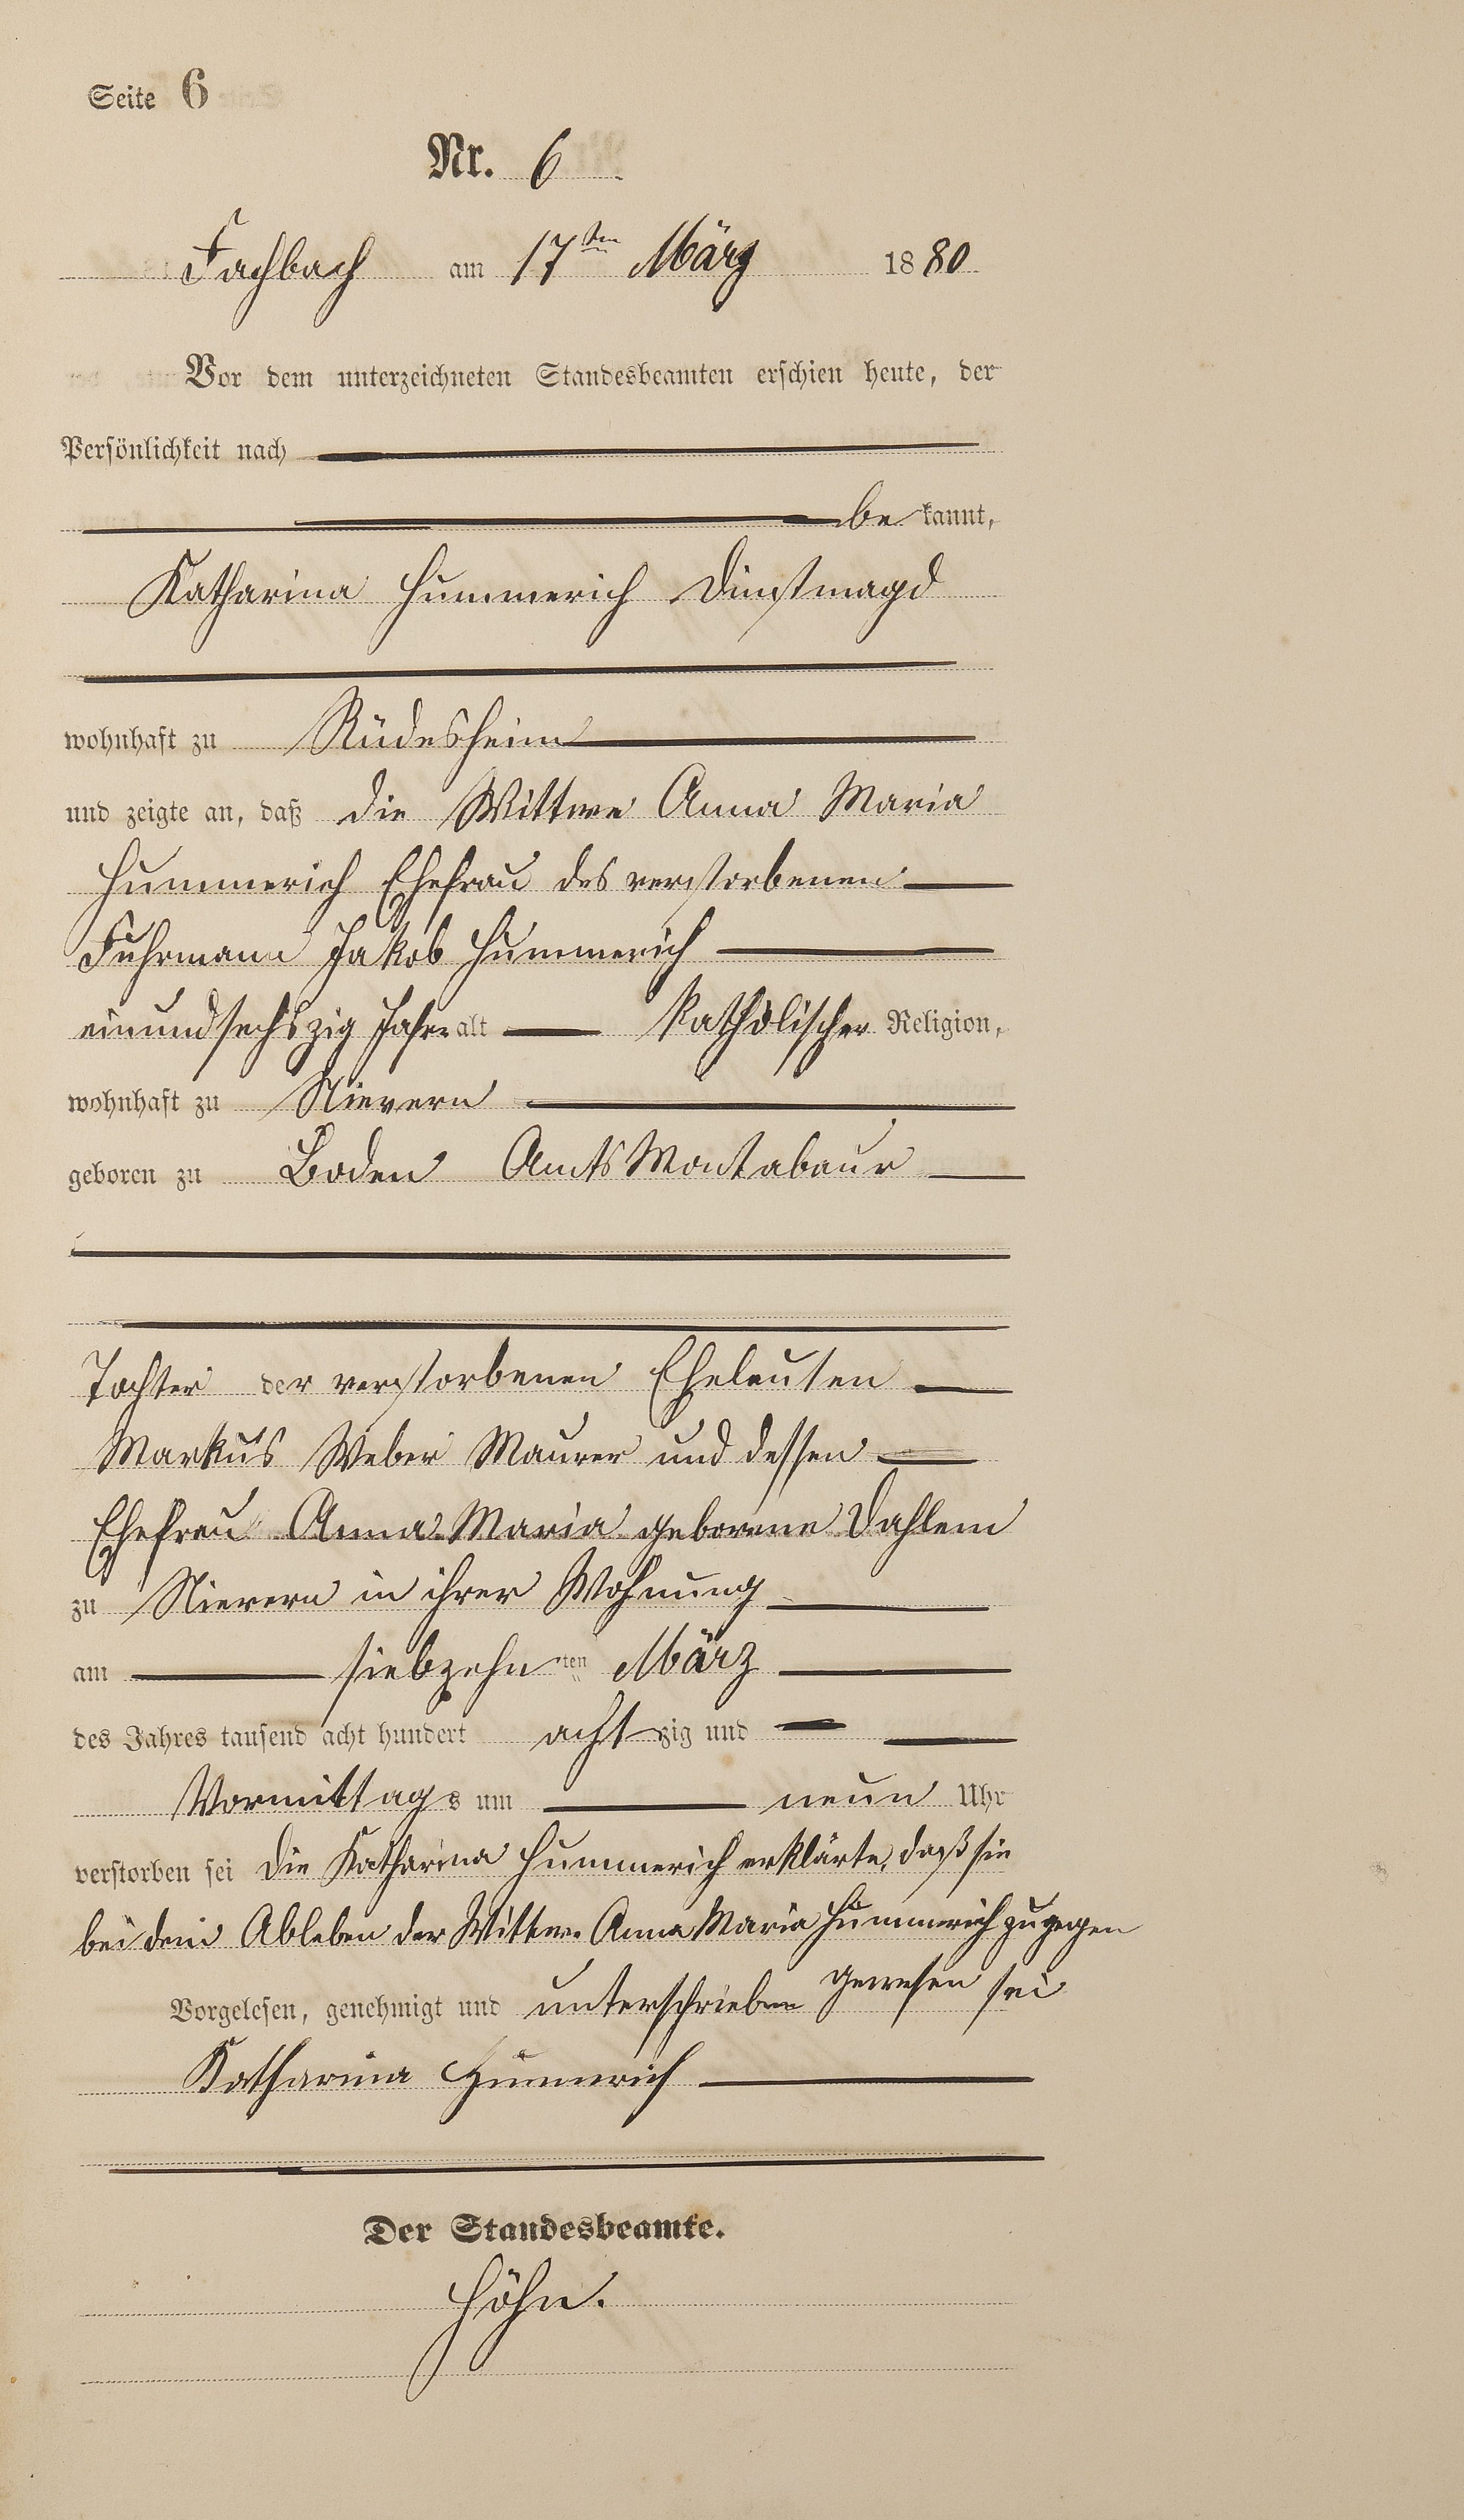 Seite 6
Nr. 6
Fachbach am 17ten März 1880
Vor dem unterzeichneten Standesbeamten erschien heute, der
Persönlichkeit nach
be kannt,
Katharina Hummerich Dinstmagd
wohnhaft zu Rüdesheim
und zeigte an, daß die Wittwe Anna Maria
Hummerich Ehefrau des verstorbenen
Fuhrmann Jakob Hummerich
einundsechszig Jahre alt katholischer Religion,
wohnhaft zu Nievern
geboren zu Boden Amts Montabaur
Tochter der verstorbenen Eheleuten
Markus Weber Maurer und dessen
Ehefrau Anna Maria geborene Dahlem
zu Nievern in ihrer Wohnung
am siebzehnten März
des Jahres tausend acht hundert achtzig und
Vormittags um neun Uhr
verstorben sei die Katharina Hummerich erklärte, daß sie
bei dem Ableben der Wittwe Anna Maria Hummerich zugegen
gewesen sei
Vorgelesen, genehmigt und unterschrieben
Katharina Hummerich
Der Standesbeamte.
Höhn.